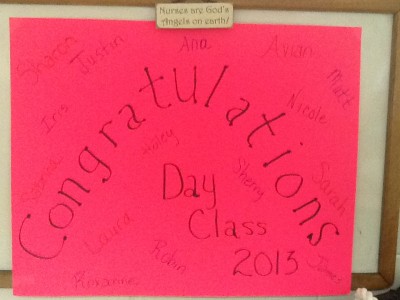 Nurses are God's
Angels on earth!
Sharon
Justin
Ana
Avian
Matt
Iris
Nicole
Congratulations
Haley
Sabrina
Sherry
Sarah
Day
Class
2013
Laura
Robin
Roxanne
James